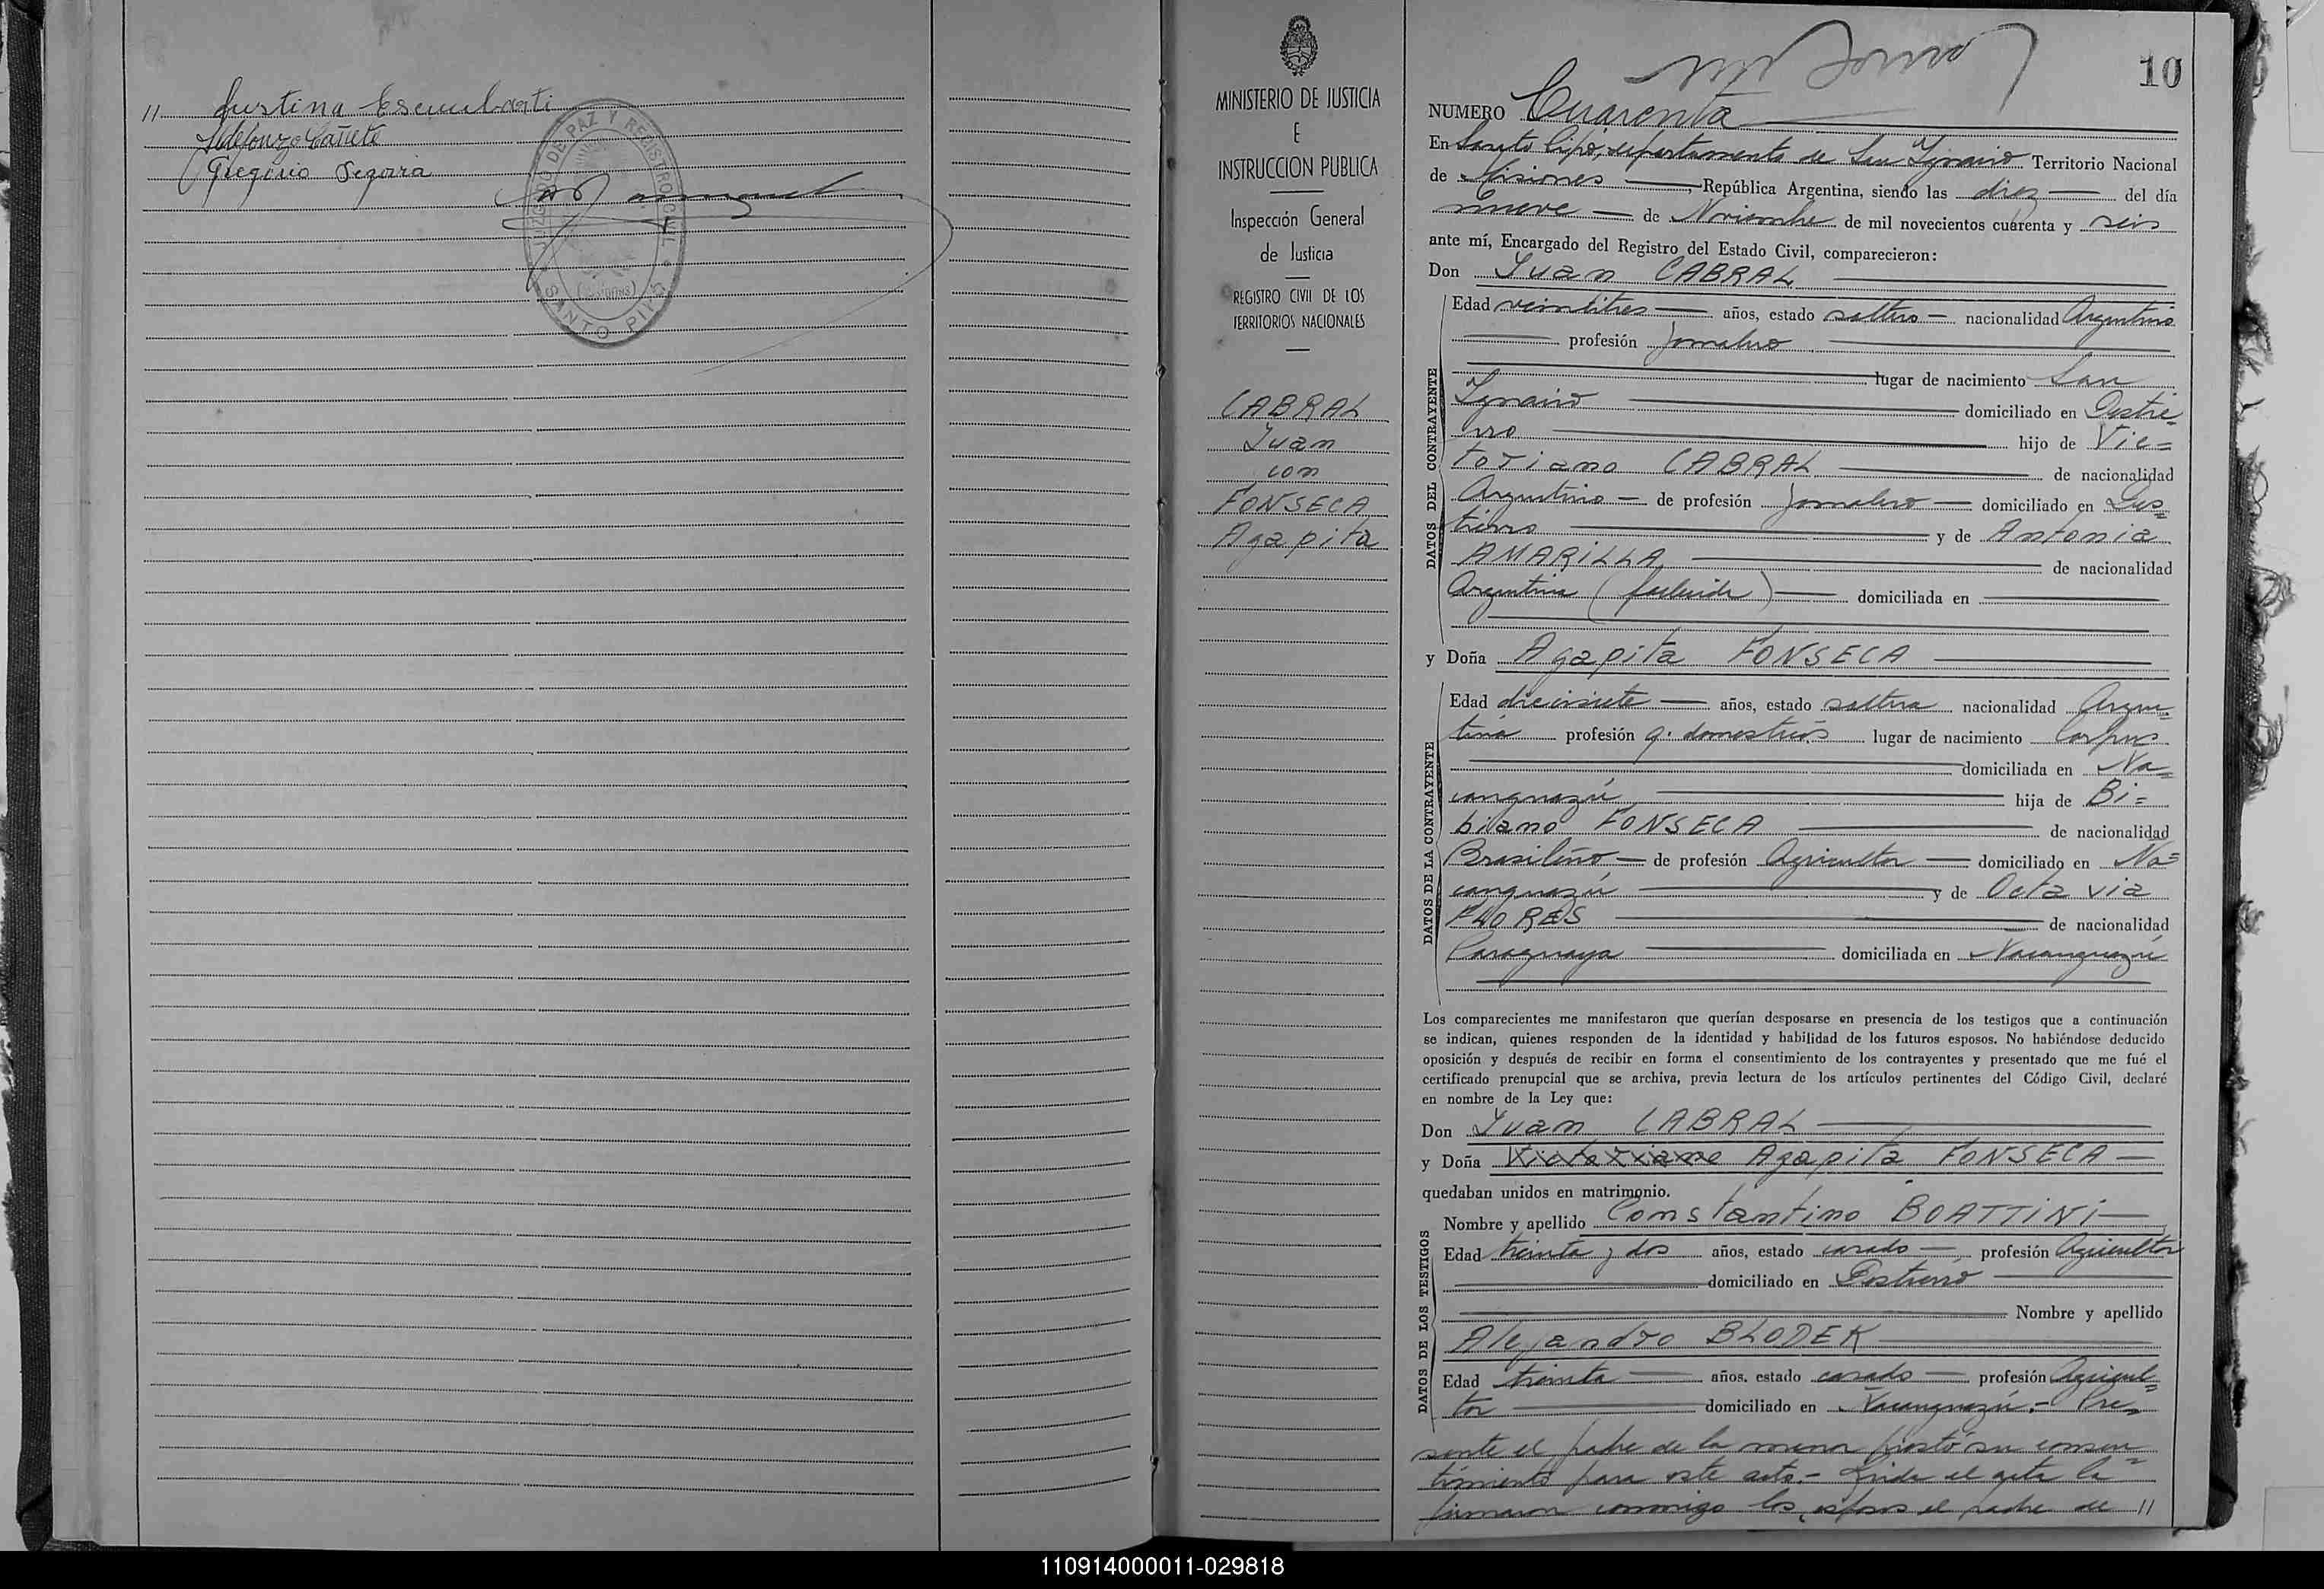 11 Justina Escumbarti
Ildefonzo Cañete
Gregorio Segovia
JUZGADO DE PAZ Y REGISTRO CIVIL
SANTO PIPÓ
(MISIONES)
MINISTERIO DE JUSTICIA
E
INSTRUCCION PUBLICA
Inspección General
de Justicia
REGISTRO CIVIL DE LOS
TERRITORIOS NACIONALES
CABRAL
Juan
con
FONSECA
Agapita
10
NUMERO Cuarenta
En Santo Pipó, departamento de San Ignacio Territorio Nacional
de Misiones, República Argentina, siendo las diez del día
nueve de Noviembre de mil novecientos cuarenta y seis
ante mí, Encargado del Registro del Estado Civil, comparecieron:
Don Juan CABRAL
DATOS DEL CONTRAYENTE
Edad veintitres años, estado soltero nacionalidad Argentino
profesión Jornalero
lugar de nacimiento San
Ignacio domiciliado en Destie=
rro hijo de Vic=
toriano CABRAL de nacionalidad
Argentino de profesión Jornalero domiciliado en Des=
tierro y de Antonia
AMARILLA de nacionalidad
Argentina (fallecida) domiciliada en
y Doña Agapita FONSECA
DATOS DE LA CONTRAYENTE
Edad diecisiete años, estado soltera nacionalidad Argen=
tina profesión q. domesticos lugar de nacimiento Corpus
domiciliada en Ña=
canguazú hija de Bi=
biano FONSECA de nacionalidad
Brasileño de profesión Agricultor domiciliado en Ña=
canguazú y de Octavia
FLORES de nacionalidad
Paraguaya domiciliada en Ñacanguazú
Los comparecientes me manifestaron que querían desposarse en presencia de los testigos que a continuación
se indican, quienes responden de la identidad y habilidad de los futuros esposos. No habiéndose deducido
oposición y después de recibir en forma el consentimiento de los contrayentes y presentado que me fué el
certificado prenupcial que se archiva, previa lectura de los artículos pertinentes del Código Civil, declaré
en nombre de la Ley que:
Don Juan CABRAL
y Doña Victoriano Agapita FONSECA
quedaban unidos en matrimonio.
DATOS DE LOS TESTIGOS
Nombre y apellido Constantino BOATTINI
Edad treinta y dos años, estado casado profesión Agricultor
domiciliado en Destierro
Nombre y apellido
Alejandro BLODEK
Edad treinta años, estado casado profesión Agricul=
tor domiciliado en Ñacanguazú.- Pre=
sente el padre de la menor prestó su consen=
timiento para este acto.- Leida el acta la
firmaron conmigo los esposos el padre de 11
110914000011-029818